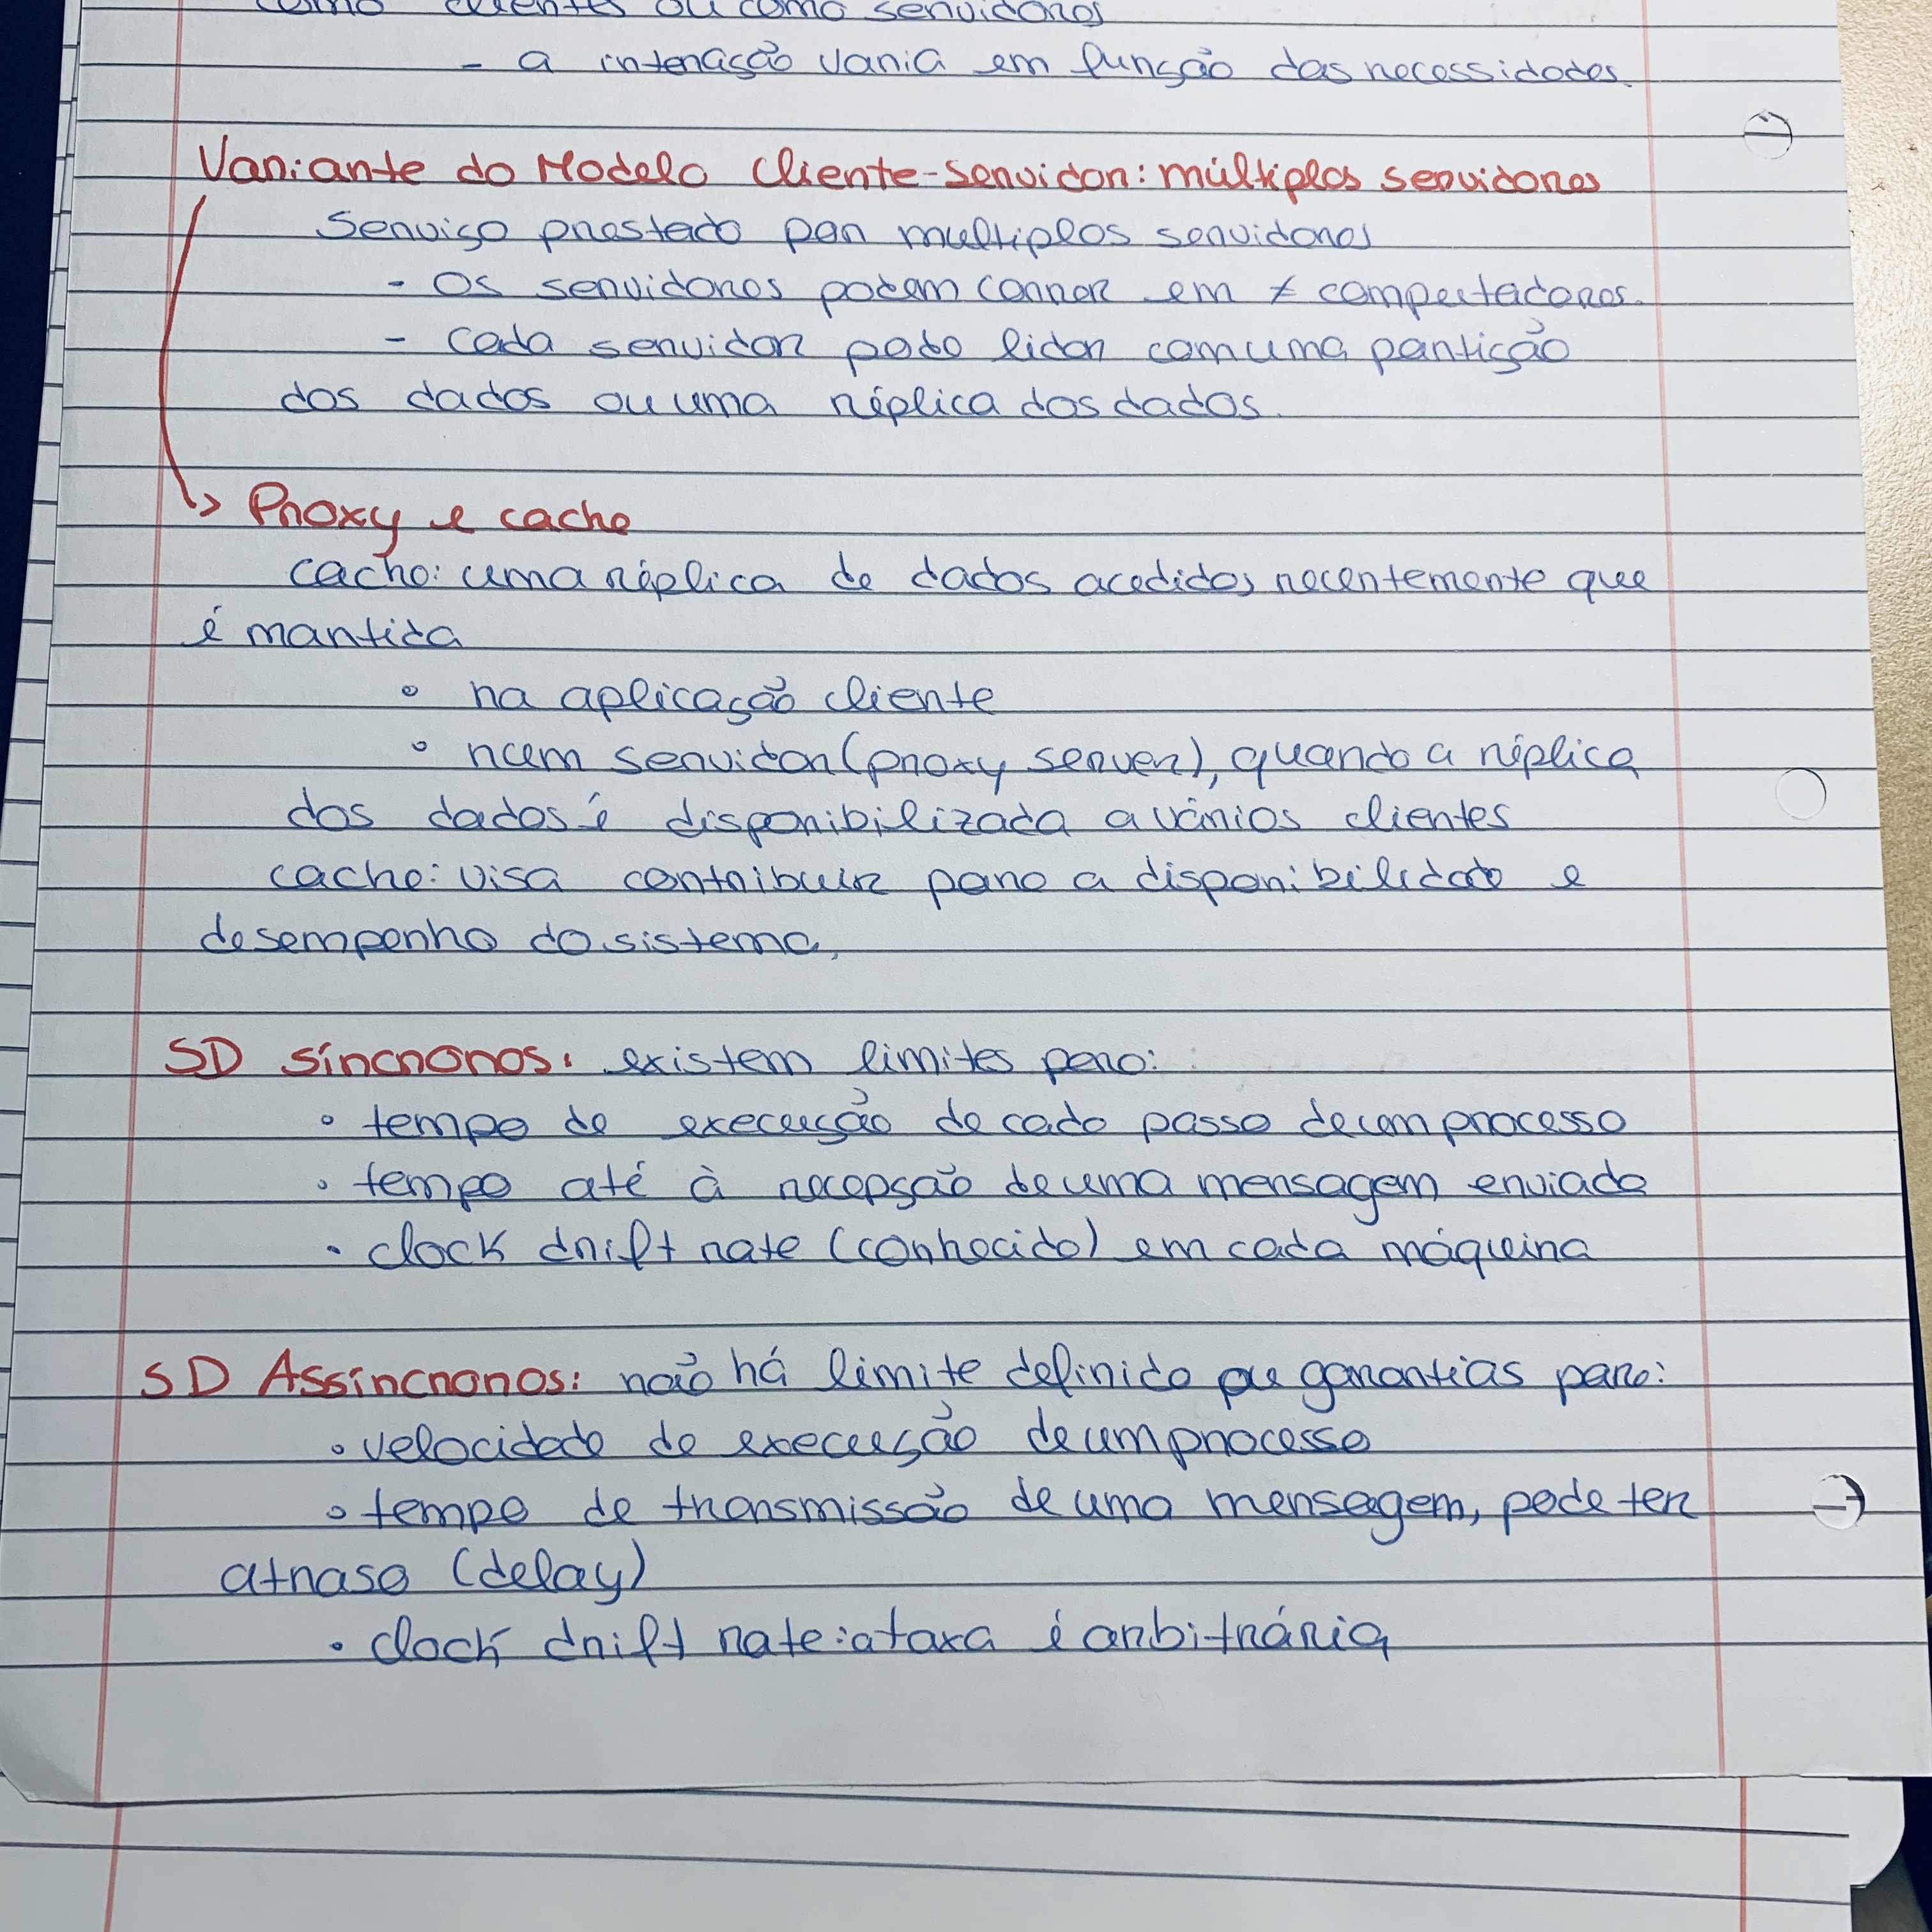 como clientes ou como servidores
- a interação varia em função das necessidades.
Variante do Modelo Cliente-Servidor: múltiplos servidores
Serviço prestado por multiplos servidores
- Os servidores podem correr em ≠ computadores.
- cada servidor pode lidar com uma partição
dos dados ou uma réplica dos dados.
↳ Proxy e cache
cache: uma réplica de dados acedidos recentemente que
é mantida
◦ na aplicação cliente
◦ num servidor (proxy server), quando a réplica
dos dados é disponibilizada a vários clientes
cache: visa contribuir para a disponibilidade e
desempenho do sistema,
SD síncronos: existem limites para:
◦ tempo de execução de cada passo de um processo
• tempo até à recepção de uma mensagem enviada
• clock drift rate (conhecido) em cada máquina
SD Assíncronos: não há limite definido ou garantias para:
◦ velocidade de execução de um processo
◦ tempo de transmissão de uma mensagem, pode ter
atraso (delay)
• clock drift rate: a taxa é arbitrária